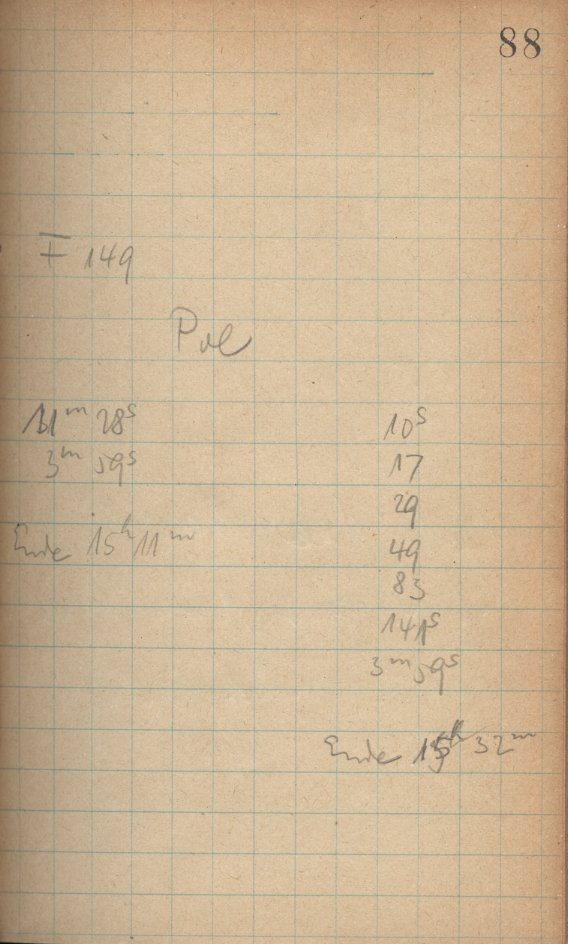 88
I 149
Pol
11ᵐ 28ˢ
3ᵐ 59ˢ
Ende 15ʰ 11ᵐ
10ˢ
17
29
49
83
141ˢ
3ᵐ 59ˢ
Ende 15ʰ 32ᵐ